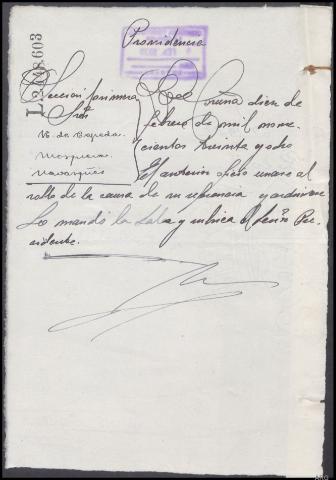 L2.148.603
Providencia
Seccion primera
Sres
V. de Cepeda.
Mosquera
Navarqués
La Coruña diez de
febrero de mil nove
cientos treinta y ocho
El anterior oficio unase al
rollo de la causa de su referencia y archivese
Lo mandó la Sala y rubrica el señor Pre-
sidente.